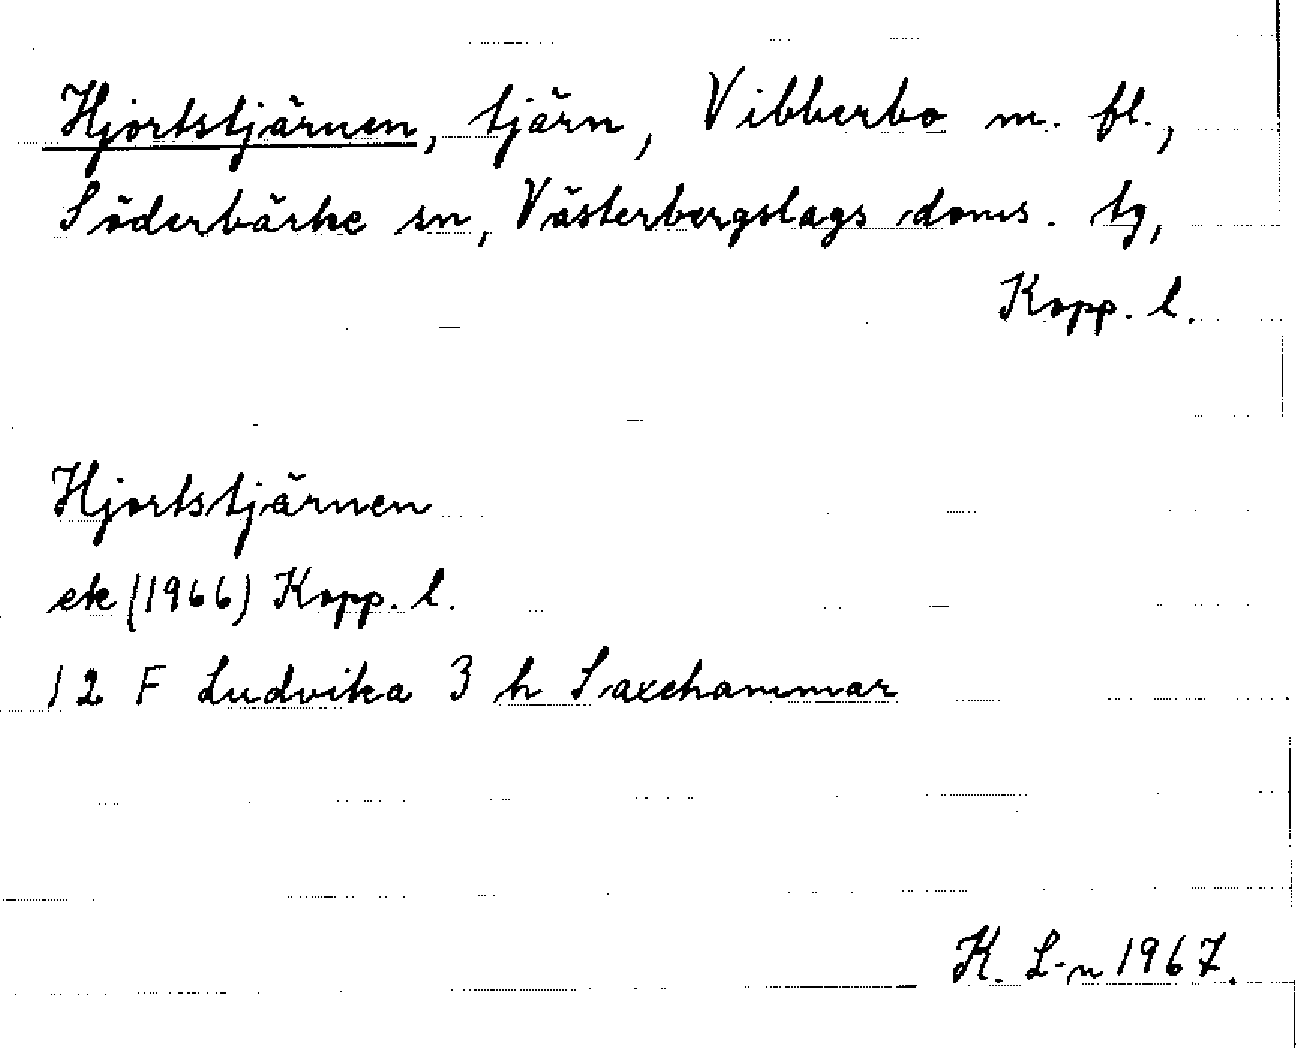 Hjortstjärnen, tjärn, Vibberbo m. fl.,
Söderbärke sn, Västerbergslags doms. tg,
Kopp. l.
Hjortstjärnen
ek (1966) Kopp. l.
12 F Ludvika 3 h Saxehammar
H. L-n 1967.